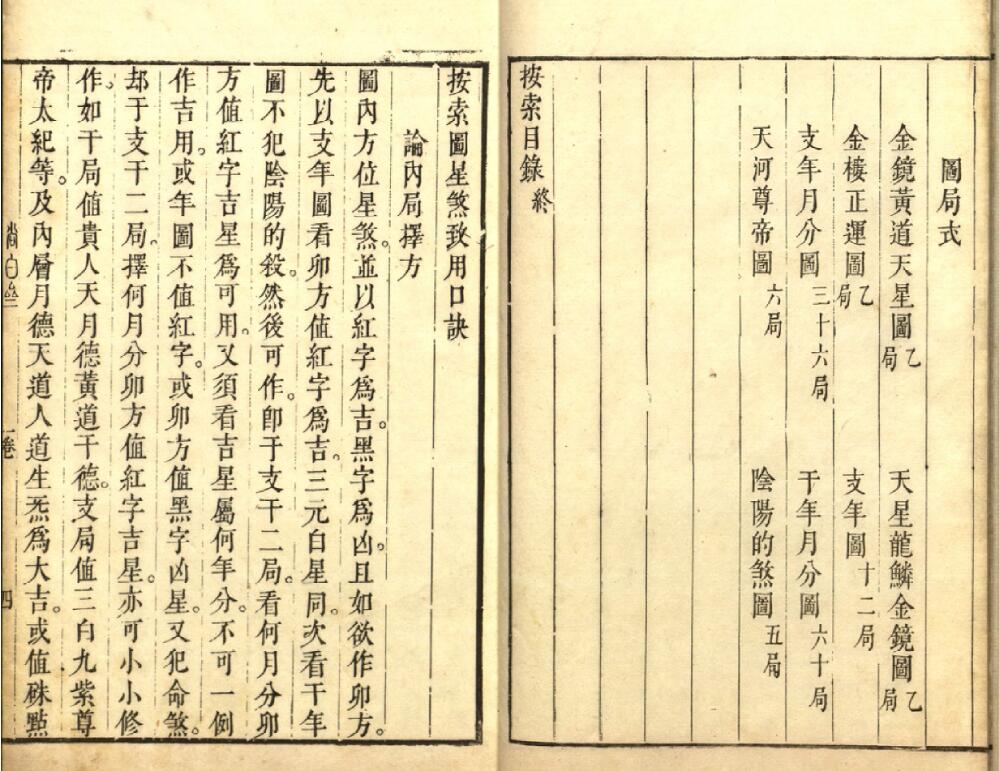 圖局式
金鏡黃道天星圖乙局　天星龍鱗金鏡圖乙局
金樓正運圖乙局　支年圖十二局
支年月分圖三十六局　干年月分圖六十局
天河尊帝圖六局　陰陽的煞圖五局
按索目錄終
按索圖星煞致用口訣
論內局擇方
圖內方位星煞。並以紅字爲吉。黑字爲凶。且如欲作卯方。
先以支年圖看卯方值紅字爲吉。三元白星同。次看干年
圖不犯陰陽的殺。然後可作。卽于支干二局。看何月分卯
方值紅字吉星爲可用。又須看吉星屬何年分。不可一例
作吉用。或年圖不值紅字。或卯方值黑字凶星。又犯命煞。
却于支干二局。擇何月分卯方值紅字吉星。亦可小小修
作。如干局值貴人天月德黃道干德。支局值三白九紫尊
帝太紀等。及內層月德天道人道生炁爲大吉。或值硃點
尚白齋
一卷
四